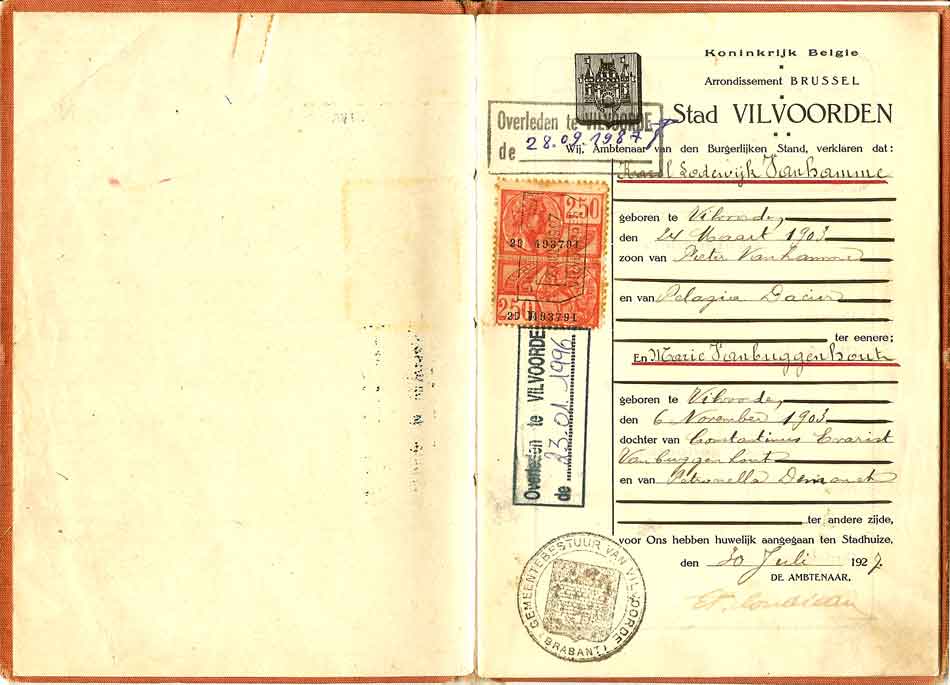 Koninkrijk Belgie
Arrondissement BRUSSEL
Stad VILVOORDEN
Overleden te VILVOORDE
de 28.09.1987
Wij, Ambtenaar van den Burgerlijken Stand, verklaren dat:
Karel Lodewijk Vanhamme
geboren te Vilvoorde,
den 24 Maart 1903
zoon van Pieter Vanhamme
en van Pelagia
ter eenere;
En Marie Vanbuggenhout
geboren te Vilvoorde,
den 6 November 1903
dochter van Constantinus Evarist
Vanbuggenhout
en van Petronella
ter andere zijde,
voor Ons hebben huwelijk aangegaan ten Stadhuize,
den 30 Juli 1927.
DE AMBTENAAR,
250
2D 493791
250
2D 493791
Overleden te VILVOORDE
de 23.01.1996
GEMEENTEBESTUUR VAN VILVOORDE
(BRABANT)